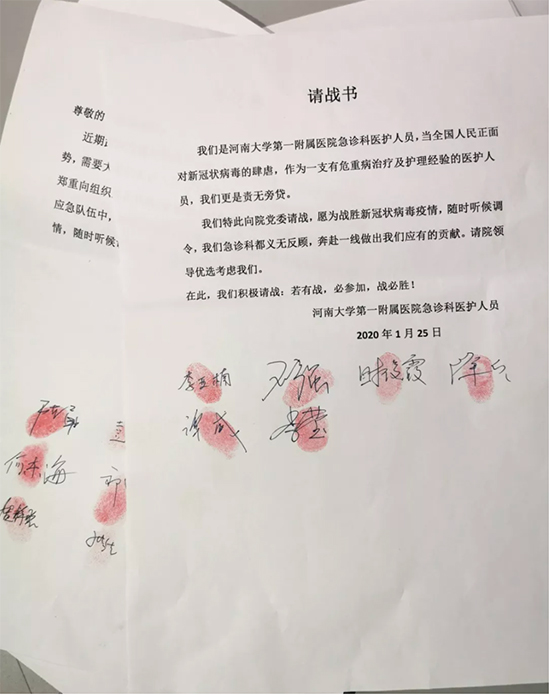 尊敬的
近期
势，需要大
郑重向组织
应急队伍中，
情，随时听候
请战书
我们是河南大学第一附属医院急诊科医护人员，当全国人民正面
对新冠状病毒的肆虐，作为一支有危重病治疗及护理经验的医护人
员，我们更是责无旁贷。
我们特此向院党委请战，愿为战胜新冠状病毒疫情，随时听候调
令，我们急诊科都义无反顾，奔赴一线做出我们应有的贡献。请院领
导优选考虑我们。
在此，我们积极请战：若有战，必参加，战必胜！
河南大学第一附属医院急诊科医护人员
2020 年 1 月 25 日